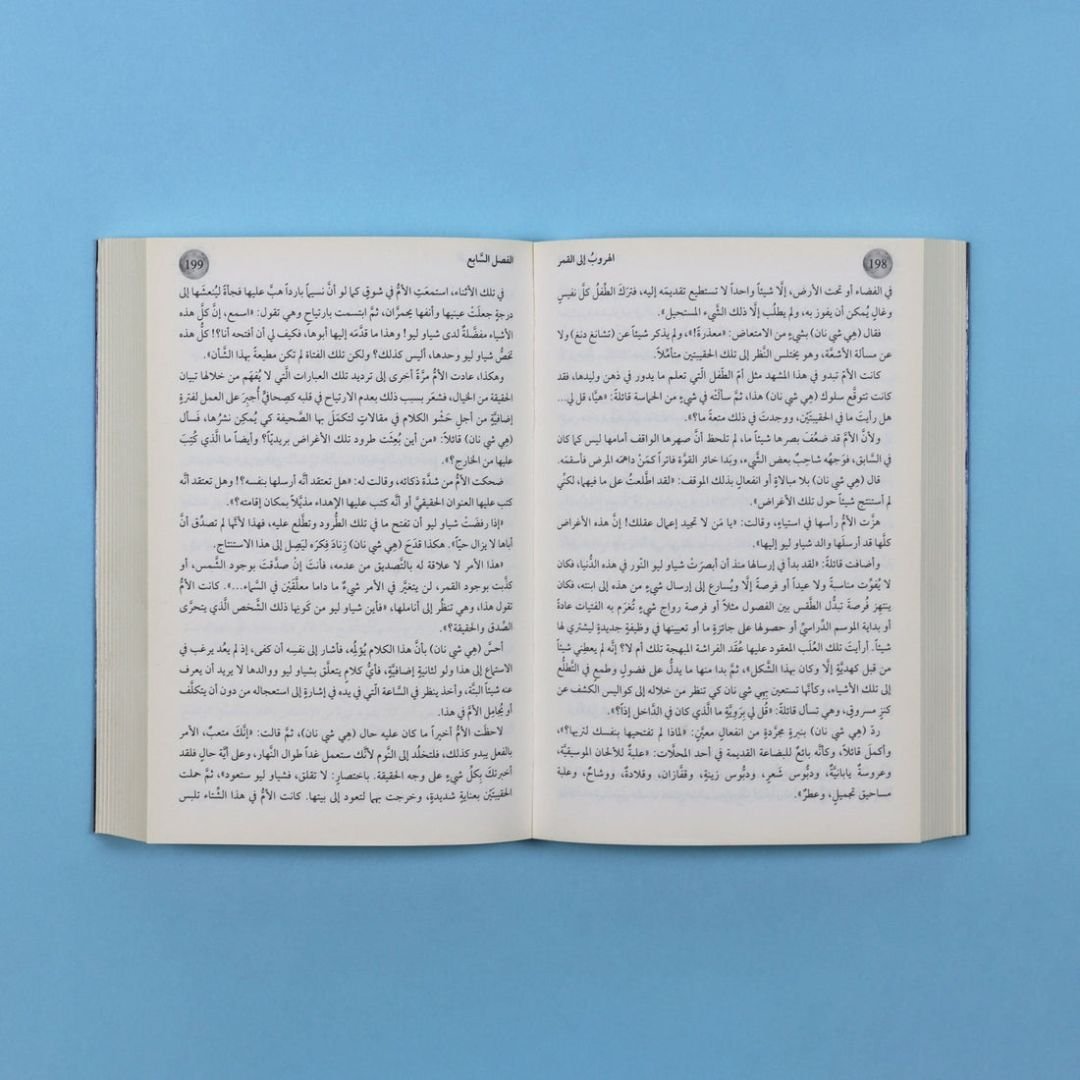 198
الهروبُ إلى القمر
في الفضاء أو تحت الأرض، إلَّا شيئاً واحداً لا تستطيع تقديمَه إليه، فتركَ الطِّفلُ كلَّ نفيسٍ
وغالٍ يُمكن أن يفوز به، ولم يطلُب إلَّا ذلك الشَّيء المستحيل».
فقال (هِي شي نان) بشيءٍ من الامتعاض: «معذرةً!»، ولم يذكر شيئاً عن (تشانغ دنغ) ولا
عن مسألة الأشعَّة، وهو يختلس النَّظر إلى تلك الحقيبتين متأمِّلاً.
كانت الأمّ تبدو في هذا المشهد مثل أمّ الطِّفل الَّتي تعلم ما يدور في ذهن وليدها، فقد
كانت تتوقَّع سلوك (هِي شي نان) هذا، ثمَّ سألَتْه في شيءٍ من الحماسة قائلةً: «هيَّا، قل لي...
هل رأيتَ ما في الحقيبتَيْن، ووجدتَ في ذلك متعةً ما؟».
ولأنَّ الأمَّ قد ضعُفَ بصرها شيئاً ما، لم تلحظ أنَّ صهرها الواقف أمامها ليس كما كان
في السابق، فوَجهُه شاحِبٌ بعض الشَّيء، وبَدا خائر القوَّة فاتراً كمَنْ داهمَه المرض فأسقمَه.
قال (هِي شي نان) بلا مبالاةٍ أو انفعالٍ بذلك الموقف: «لقد اطَّلعتُ على ما فيهما، لكنّي
لم أستنتج شيئاً حول تلك الأغراض».
هزَّت الأمُّ رأسها في استياءٍ، وقالت: «يا مَن لا تجيد إعمال عقلك! إنَّ هذه الأغراض
كلَّها قد أرسلَها والد شياو ليو إليها».
وأضافت قائلةً: «لقد بدأ في إرسالها منذ أن أبصرَتْ شياو ليو النّور في هذه الدُّنيا، فكان
لا يُفوِّت مناسبةً ولا عيداً أو فرصةً إلَّا ويُسارع إلى إرسال شيءٍ من هذه إلى ابنته، فكان
ينتهز فُرصةَ تبدُّل الطَّقس بين الفصول مثلاً أو فرصة رواج شيءٍ تُغرَم به الفتيات عادةً
أو بداية الموسم الدِّراسيِّ أو حصولها على جائزةٍ ما أو تعيينها في وظيفةٍ جديدةٍ ليشتري لها
شيئاً. أرأيتَ تلك العُلَب المعقود عليها عُقَد الفراشة المبهجة تلك أم لا؟ إنَّه لم يعطِني شيئاً
من قبل كهديَّةٍ إلَّا وكان بهذا الشَّكل»، ثمَّ بدا منها ما يدلُّ على فضولٍ وطمعٍ في التَّطلُّع
إلى تلك الأشياء، وكأنَّها تستعين بِهِي شي نان كي تنظر من خلاله إلى كواليس الكشف عن
كنزٍ مسروقٍ، وهي تسأل قائلةً: «قُل لي بِرَوِيَّةٍ ما الَّذي كان في الدَّاخل إذاً؟».
ردَّ (هِي شي نان) بنبرةٍ مجرَّدةٍ من انفعالٍ معيَّنٍ: «لماذا لم تفتحيها بنفسك لتريها؟»،
وأكملَ قائلاً، وكأنَّه بائعٌ للبضاعة القديمة في أحد المحلَّات: «علبةٌ للألحان الموسيقيَّة،
وعروسةٌ يابانيَّةٌ، ودبُّوس شَعرٍ، ودبُّوس زينةٍ، وقفَّازان، وقلادةٌ، ووشاحٌ، وعلبة
مساحيق تجميلٍ، وعطرٌ».
199
الفصل السَّابع
في تلك الأثناء، استمعَتِ الأمُّ في شوقٍ كما لو أنَّ نسيماً بارداً هبَّ عليها فجأةً ليُنعشَها إلى
درجةٍ جعلَتْ عينيها وأنفها يحمرَّان، ثمَّ ابتسمت بارتياحٍ وهي تقول: «اسمع، إنَّ كلَّ هذه
الأشياء مفضَّلةٌ لدى شياو ليو! وهذا ما قدَّمه إليها أبوها، فكيف لي أن أفتحه أنا؟! كلُّ هذه
تخصُّ شياو ليو وحدها، أليس كذلك؟ ولكن تلك الفتاة لم تكن مطيعةً بهذا الشَّأن».
وهكذا، عادت الأمُّ مرَّةً أخرى إلى ترديد تلك العبارات الَّتي لا يُفهَم من خلالها تبيان
الحقيقة من الخيال، فشعَر بسبب ذلك بعدم الارتياح في قلبه كصِحافيٍّ أُجبِرَ على العمل لفترةٍ
إضافيَّةٍ من أجل حَشْو الكلام في مقالاتٍ لتكمَل بها الصَّحيفة كي يُمكِن نشرُها، فَسأل
(هِي شي نان) قائلاً: «من أين بُعِثَت طرود تلك الأغراض بريديّاً؟ وأيضاً ما الَّذي كُتِبَ
عليها من الخارج؟».
ضحكت الأمُّ من شدَّة ذكائه، وقالت له: «هل تعتقد أنَّه أرسلها بنفسه؟! وهل تعتقد أنَّه
كتب عليها العنوان الحقيقيَّ أو أنَّه كتب عليها الإهداء مذيَّلاً بمكان إقامته؟».
«إذا رفضَتْ شياو ليو أن تفتح ما في تلك الطُّرود وتطَّلع عليه، فهذا لأنَّها لم تصدِّق أنَّ
أباها لا يزال حيّاً». هكذا قدَحَ (هِي شي نان) زِنادَ فِكرَه ليَصِل إلى هذا الاستنتاج.
«هذا الأمر لا علاقة له بالتَّصديق من عدمه، فأنتَ إنْ صدَّقتَ بوجود الشَّمس، أو
كذَّبت بوجود القمر، لن يتغيَّر في الأمر شيءٌ ما داما معلَّقَيْن في السَّماء...». كانت الأمُّ
تقول هذا، وهي تنظُر إلى أناملها، «فأين شياو ليو من كَونِها ذلك الشَّخص الَّذي يتحرَّى
الصِّدق والحقيقة؟».
أحسَّ (هِي شي نان) بأنَّ هذا الكلام يُؤلِمُه، فأشار إلى نفسِه أن كفى، إذ لم يعُد يرغب في
الاستماع إلى هذا ولو لثانيةٍ إضافيَّةٍ، فأيُّ كلامٍ يتعلَّق بشياو ليو ووالدها لا يريد أن يعرف
عنه شيئاً البتَّة، وأخذ ينظر في السَّاعة الَّتي في يده في إشارةٍ إلى استعجاله من دون أن يتكلَّف
أو يُجامِل الأمَّ في هذا.
لاحظَت الأمُّ أخيراً ما كان عليه حال (هِي شي نان)، ثمَّ قالت: «إنَّكَ متعبٌ، الأمر
بالفعل يبدو كذلك، فلتخلُد إلى النَّوم لأنَّك ستعمل غداً طوال النَّهار، وعلى أيَّة حالٍ فلقد
أخبرتكَ بِكلِّ شيءٍ على وجه الحقيقة. باختصارٍ: لا تقلق، فشياو ليو ستعود»، ثمَّ حملت
الحقيبتَيْن بعنايةٍ شديدةٍ، وخرجت بهما لتعود إلى بيتها. كانت الأمُّ في هذا الشِّتاء تلبس